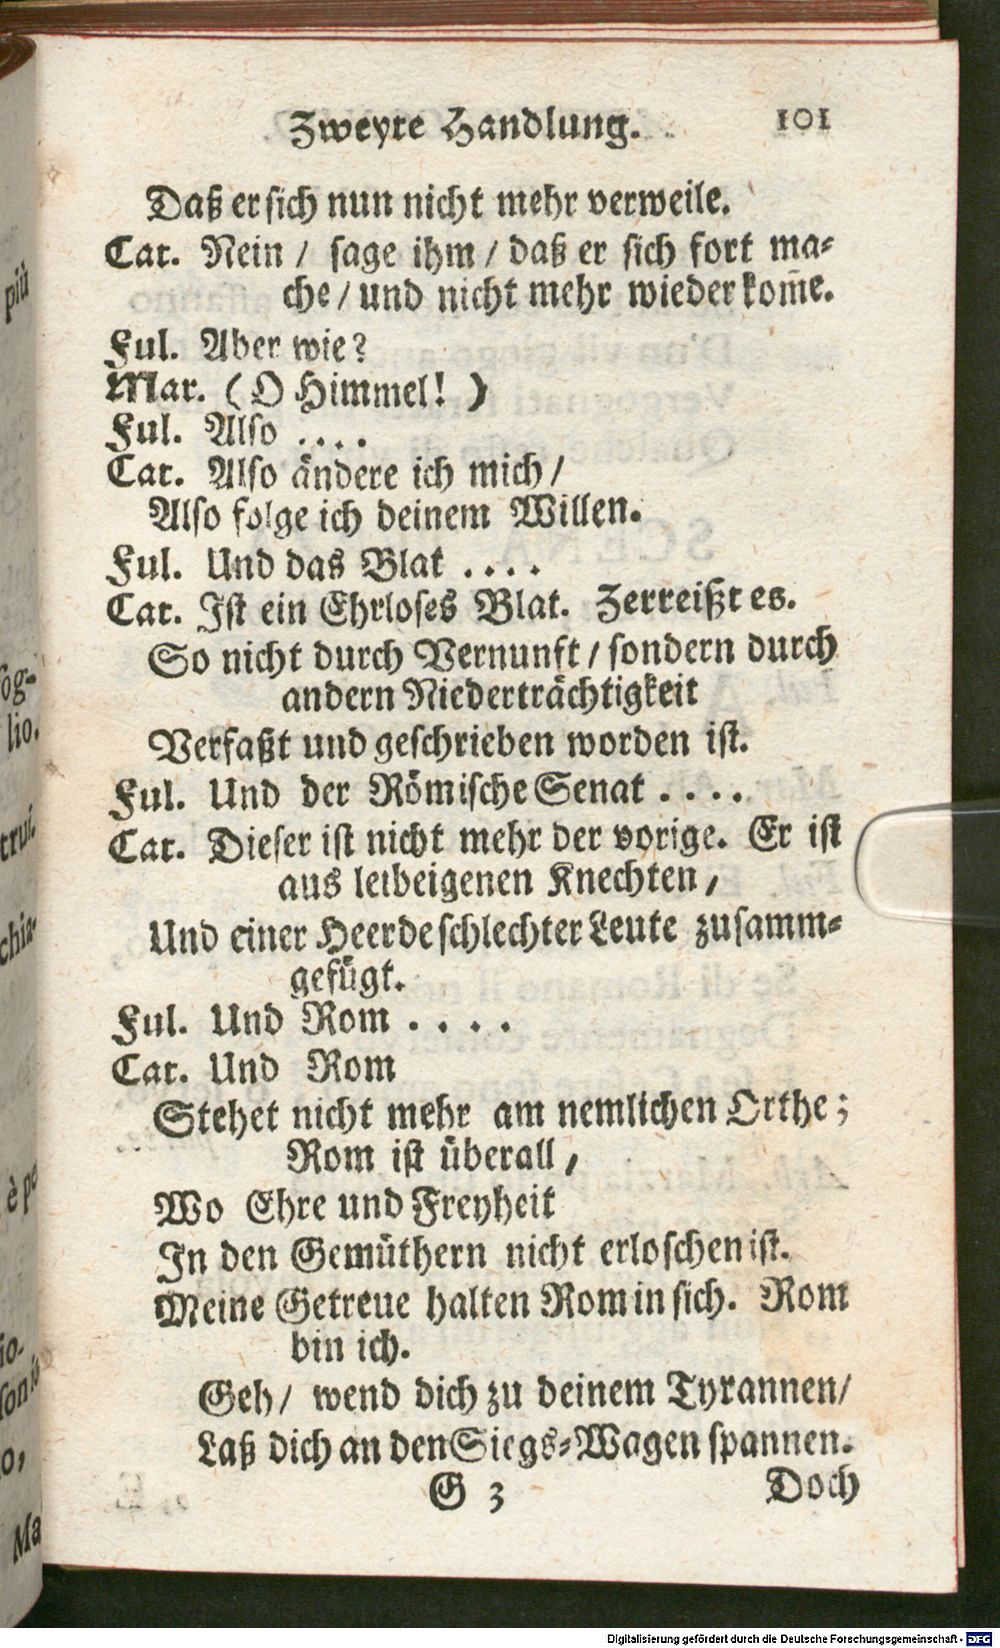 Zweyte Handlung. 101
Daß er sich nun nicht mehr verweile.
Cat. Nein / sage ihm / daß er sich fort ma-
che / und nicht mehr wieder kom̅e.
Ful. Aber wie?
Mar. (O Himmel! )
Ful. Also ....
Cat. Also ändere ich mich /
Also folge ich deinem Willen.
Ful. Und das Blat ....
Cat. Ist ein Ehrloses Blat. Zerreißt es.
So nicht durch Vernunft / sondern durch
andern Niederträchtigkeit
Verfaßt und geschrieben worden ist.
Ful. Und der Römische Senat ....
Cat. Dieser ist nicht mehr der vorige. Er ist
aus leibeigenen Knechten /
Und einer Heerde schlechter Leute zusamm-
gefügt.
Ful. Und Rom ....
Cat. Und Rom
Stehet nicht mehr am nemlichen Orthe;
Rom ist überall /
Wo Ehre und Freyheit
In den Gemüthern nicht erloschen ist.
Meine Getreue halten Rom in sich. Rom
bin ich.
Geh / wend dich zu deinem Tyrannen /
Laß dich an den Siegs-Wagen spannen.
G 3 Doch
più
sög-
lio.
trui.
chia-
è po
io-
son io
o,
Ma
Digitalisierung gefördert durch die Deutsche Forschungsgemeinschaft - DFG